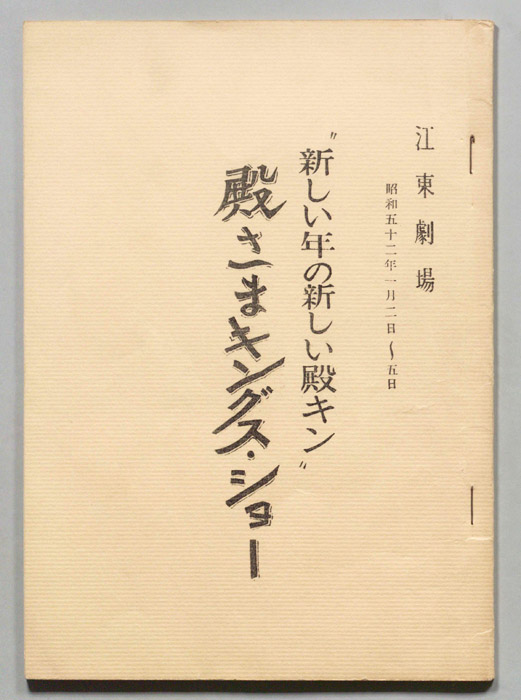 江東劇場
昭和五十二年一月二日〜五日
"新しい年の新しい殿キン"
殿さまキングス・ショー